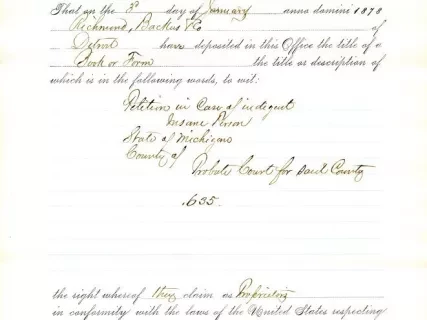 That on the 3d day of January anno domini 1878
Richmond, Backus & Co of
Detroit have deposited in this Office the title of a
Book or Form the title or description of
which is in the following words, to wit:
Petition in Case of indegent
Insane Person
State of Michigan
County of
Probate Court for said County
.635.
the right whereof they claim as Proprietors
in conformity with the laws of the United States respecting